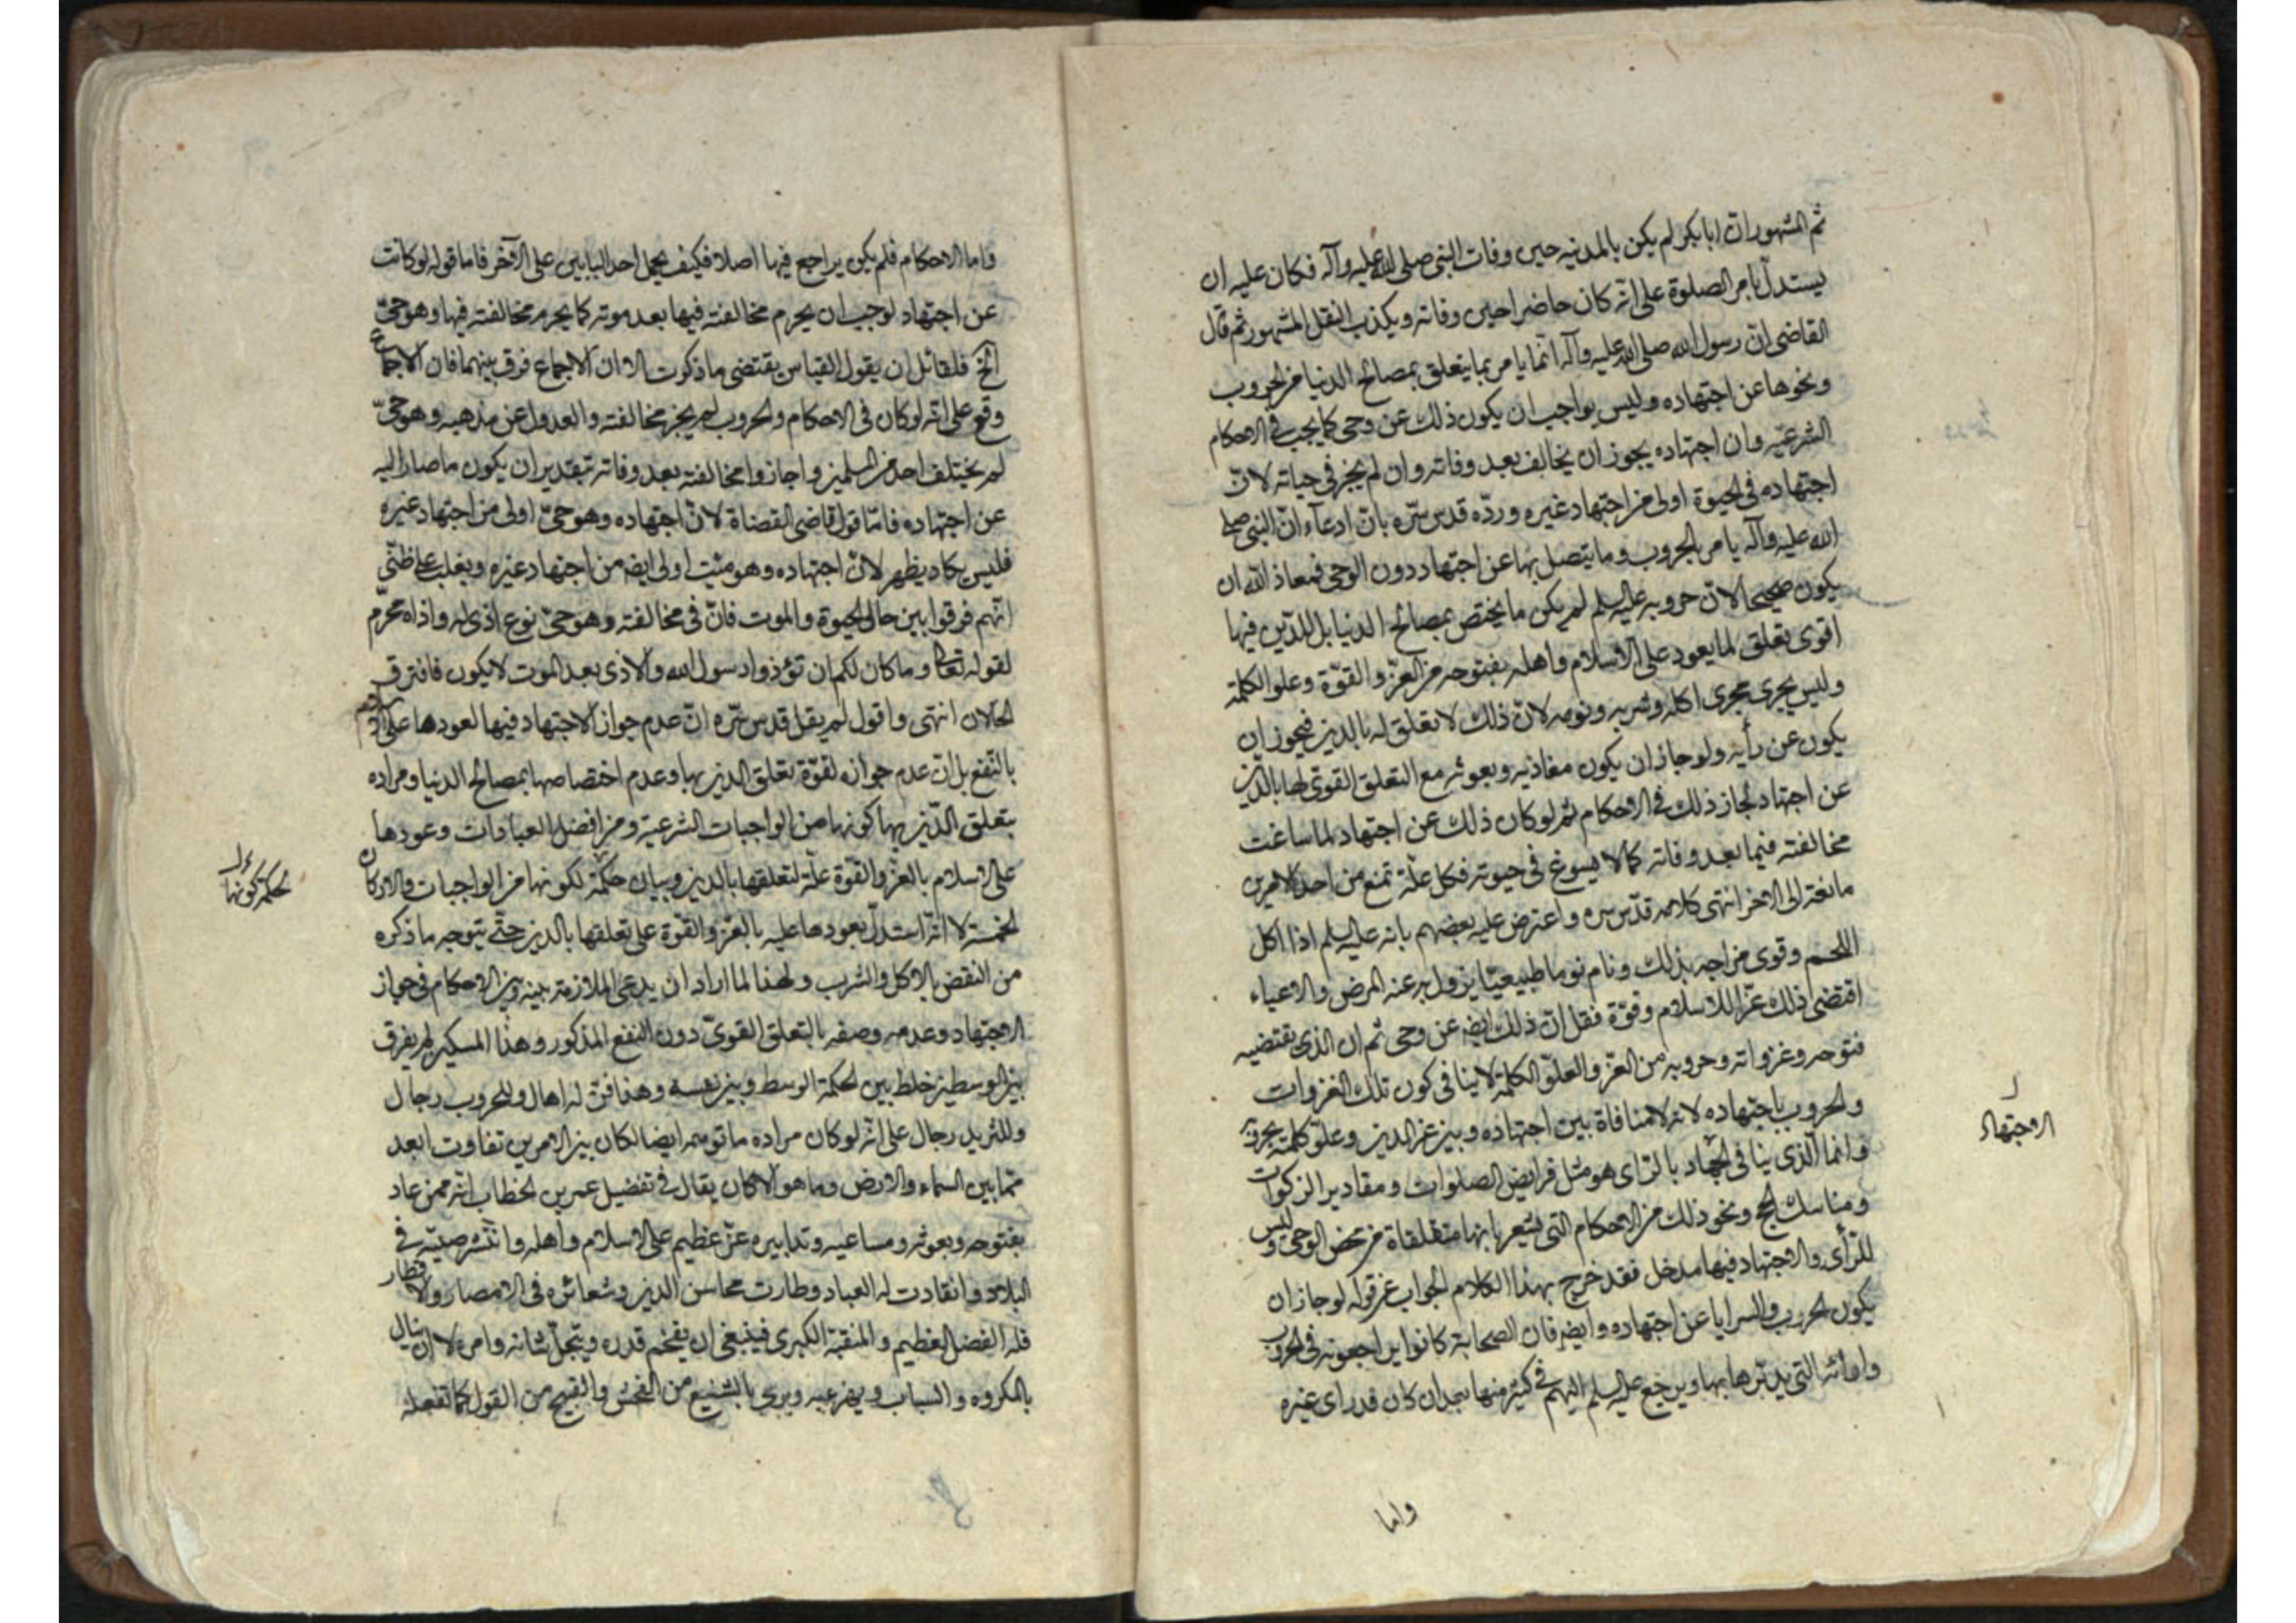 ثم المشهور ان ابابكر لم يكن بالمدينه حين وفات النبى صلى الله عليه وآله فكان عليه ان
يستدل بامر الصلوة على انّه كان حاضرا حين وفاته ويكذب النقل المشهور ثم قال
القاضى انّ رسول الله صلى الله عليه وآله انّما يامر بما يتعلق بمصالح الدنيا من الحروب
ونحوها عن اجتهاده وليس بواجب ان يكون ذلك عن وحى كما يجب فى الاحكام
الشرعيّه وان اجتهاده يجوز ان يخالف بعد وفاته وان لم يجز فى حياته لانّ
اجتهاده فى الحيوة اولى من اجتهاد غيره وردّه قدس سرّه بانّ ادعآء انّ النبى صلى
الله عليه وآله يامر بالحروب وما يتصل بها عن اجتهاد دون الوحى فمعاذ الله ان
يكون صحيحا لانّ حروبه عليه السلم لم يكن ما يختص بمصالح الدنيا بل للدّين فيها
اقوى تعلق لما يعود على الاسلام واهله بفتوحه من العزّ والقوّة وعلو الكلمة
وليس يجرى مجرى اكله وشربه ونومه لانّ ذلك لا تعلق له بالدين فيجوز ان
يكون عن رأيه ولو جاز ان يكون مغازيه وبعوثه مع التعلق القوىّ لها بالدّين
عن اجتهاد لجاز ذلك فى الاحكام ثم لو كان ذلك عن اجتهاد لما ساغت
مخالفته فيما بعد وفاته كما لا يسوغ فى حيوته فكل علّة تمنع من احد الامرين
مانعة الى الاخر انتهى كلامه قدّس سره واعترض عليه بعضهم بانه عليه السلم اذا اكل
اللحم وقوى مزاجه بذلك ونام نوما طبيعيّا يزول به عنه المرض والاعياء
اقتضى ذلك عزّا للاسلام وقوّة فقل انّ ذلك ايضه عن وحى ثم ان الذى يقتضيه
فتوحه وغزواته وحروبه من العزّ والعلوّ الكلمة لا ينافى كون تلك الغزوات
والحروب باجتهاده لانه لا منافاة بين اجتهاده وبين عز الدين وعلوّ كلمته بحروبه
وانما الّذى ينافى الجهاد بالرّاى هو مثل فرايض الصلوات ومقادير الزكوات
الاجتهاد
ومناسك الحج ونحو ذلك من الاحكام التى يشعر بانها متقلقاة من محض الوحى وليس
للرّأى والاجتهاد فيها مدخل فقد خرج بهذا الكلام الجواب عن قوله لو جاز ان
يكون الحروب والسرايا عن اجتهاده وايضه فان الصحابة كانوا يراجعونه فى الحروب
وارائه التى يدبّرها بها ويرجع عليه السلم اليهم فى كثير منها بعد ان كان قد راى غيره
واما
واما الاحكام فلم يكن يراجع فيها اصلا فكيف يحمل احد البابين على الآخر فاما قوله لو كانت
عن اجتهاد لوجب ان يحرم مخالفته فيها بعد موته كما يحرم مخالفته فيها وهو حىّ
الخ فلقائل ان يقول القياس يقتضى ما ذكرت الا ان الاجماع فرق بينهما فان الاجماع
وقع على انه لو كان فى الاحكام والحروب لم يجز مخالفته والعدول عن مذهبه وهو حىّ
لم يختلف احد من المسلمين واجازوا مخالفته بعد وفاته بتقدير ان يكون ما صار اليه
عن اجتهاده فامّا قول قاضى القضاة لانّ اجتهاده وهو حىّ اولى من اجتهاد غيره
فليس يكاد يظهر لانّ اجتهاده وهو ميّت اولى ايضه من اجتهاد غيره ويغلب على ظنّى
انهم فرقوا بين حالى الحيوة والموت فانّ فى مخالفته وهو حىّ نوع اذى له واذاه محرّم
لقوله تعالى وما كان لكم ان تؤذوا رسول الله والاذى بعد الموت لا يكون فافترق
الحالان انتهى واقول لم يقل قدس سرّه انّ عدم جواز الاجتهاد فيها لعودها على
بالنّفع بل انّ عدم جوازه لقوّة تعلق الدين بها وعدم اختصاصها بمصالح الدنيا ومراده
بتعلق الدّين بها كونها من الواجبات الشرعية ومن افضل العبادات وعودها
على الاسلام بالعزّ والقوّة علّة لتعلقها بالدين وبيان حكمة لكونها من الواجبات والاركان
لحكم كونها
الخمسة لا انّه استدلّ بعودها عليه بالعزّ والقوّة على تعلقها بالدين حتّى يتوجه ما ذكره
من النقض بالاكل والشرب ولهذا لما اراد ان يدعى الملازمة بينه وبين الاحكام فى جواز
الاجتهاد وعدمه وصفه بالتعلق القوىّ دون النفع المذكور وهذا المسكين لم يفرق
بين الوسطين خلط بين لحكمة الوسط وبين نفسه وهذا فنّ له اهال وللحروب رجال
وللثريد رجال على انّه لو كان مراده ما توهمه ايضا لكان بين الامرين تفاوت ابعد
ممّا بين السماء والارض وما هو الا كان يقال فى تفضيل عمر بن الخطاب انّه ممن عاد
بفتوحه وبعوثه ومساعيه وتدابيره عزّ عظيم على الاسلام واهله وانتشر صيته فى
البلاد وانقادت له العباد وطارت محاسن الدين وشعائره فى الامصار والاقطار
فله الفضل العظيم والمنقبة الكبرى فينبغى ان يفخم قدره ويبجّل شانه وامره لا ان ينال
بالمكروه والسباب ويرمى بالشنيع من الفحش والقبيح من القول كما تفعله